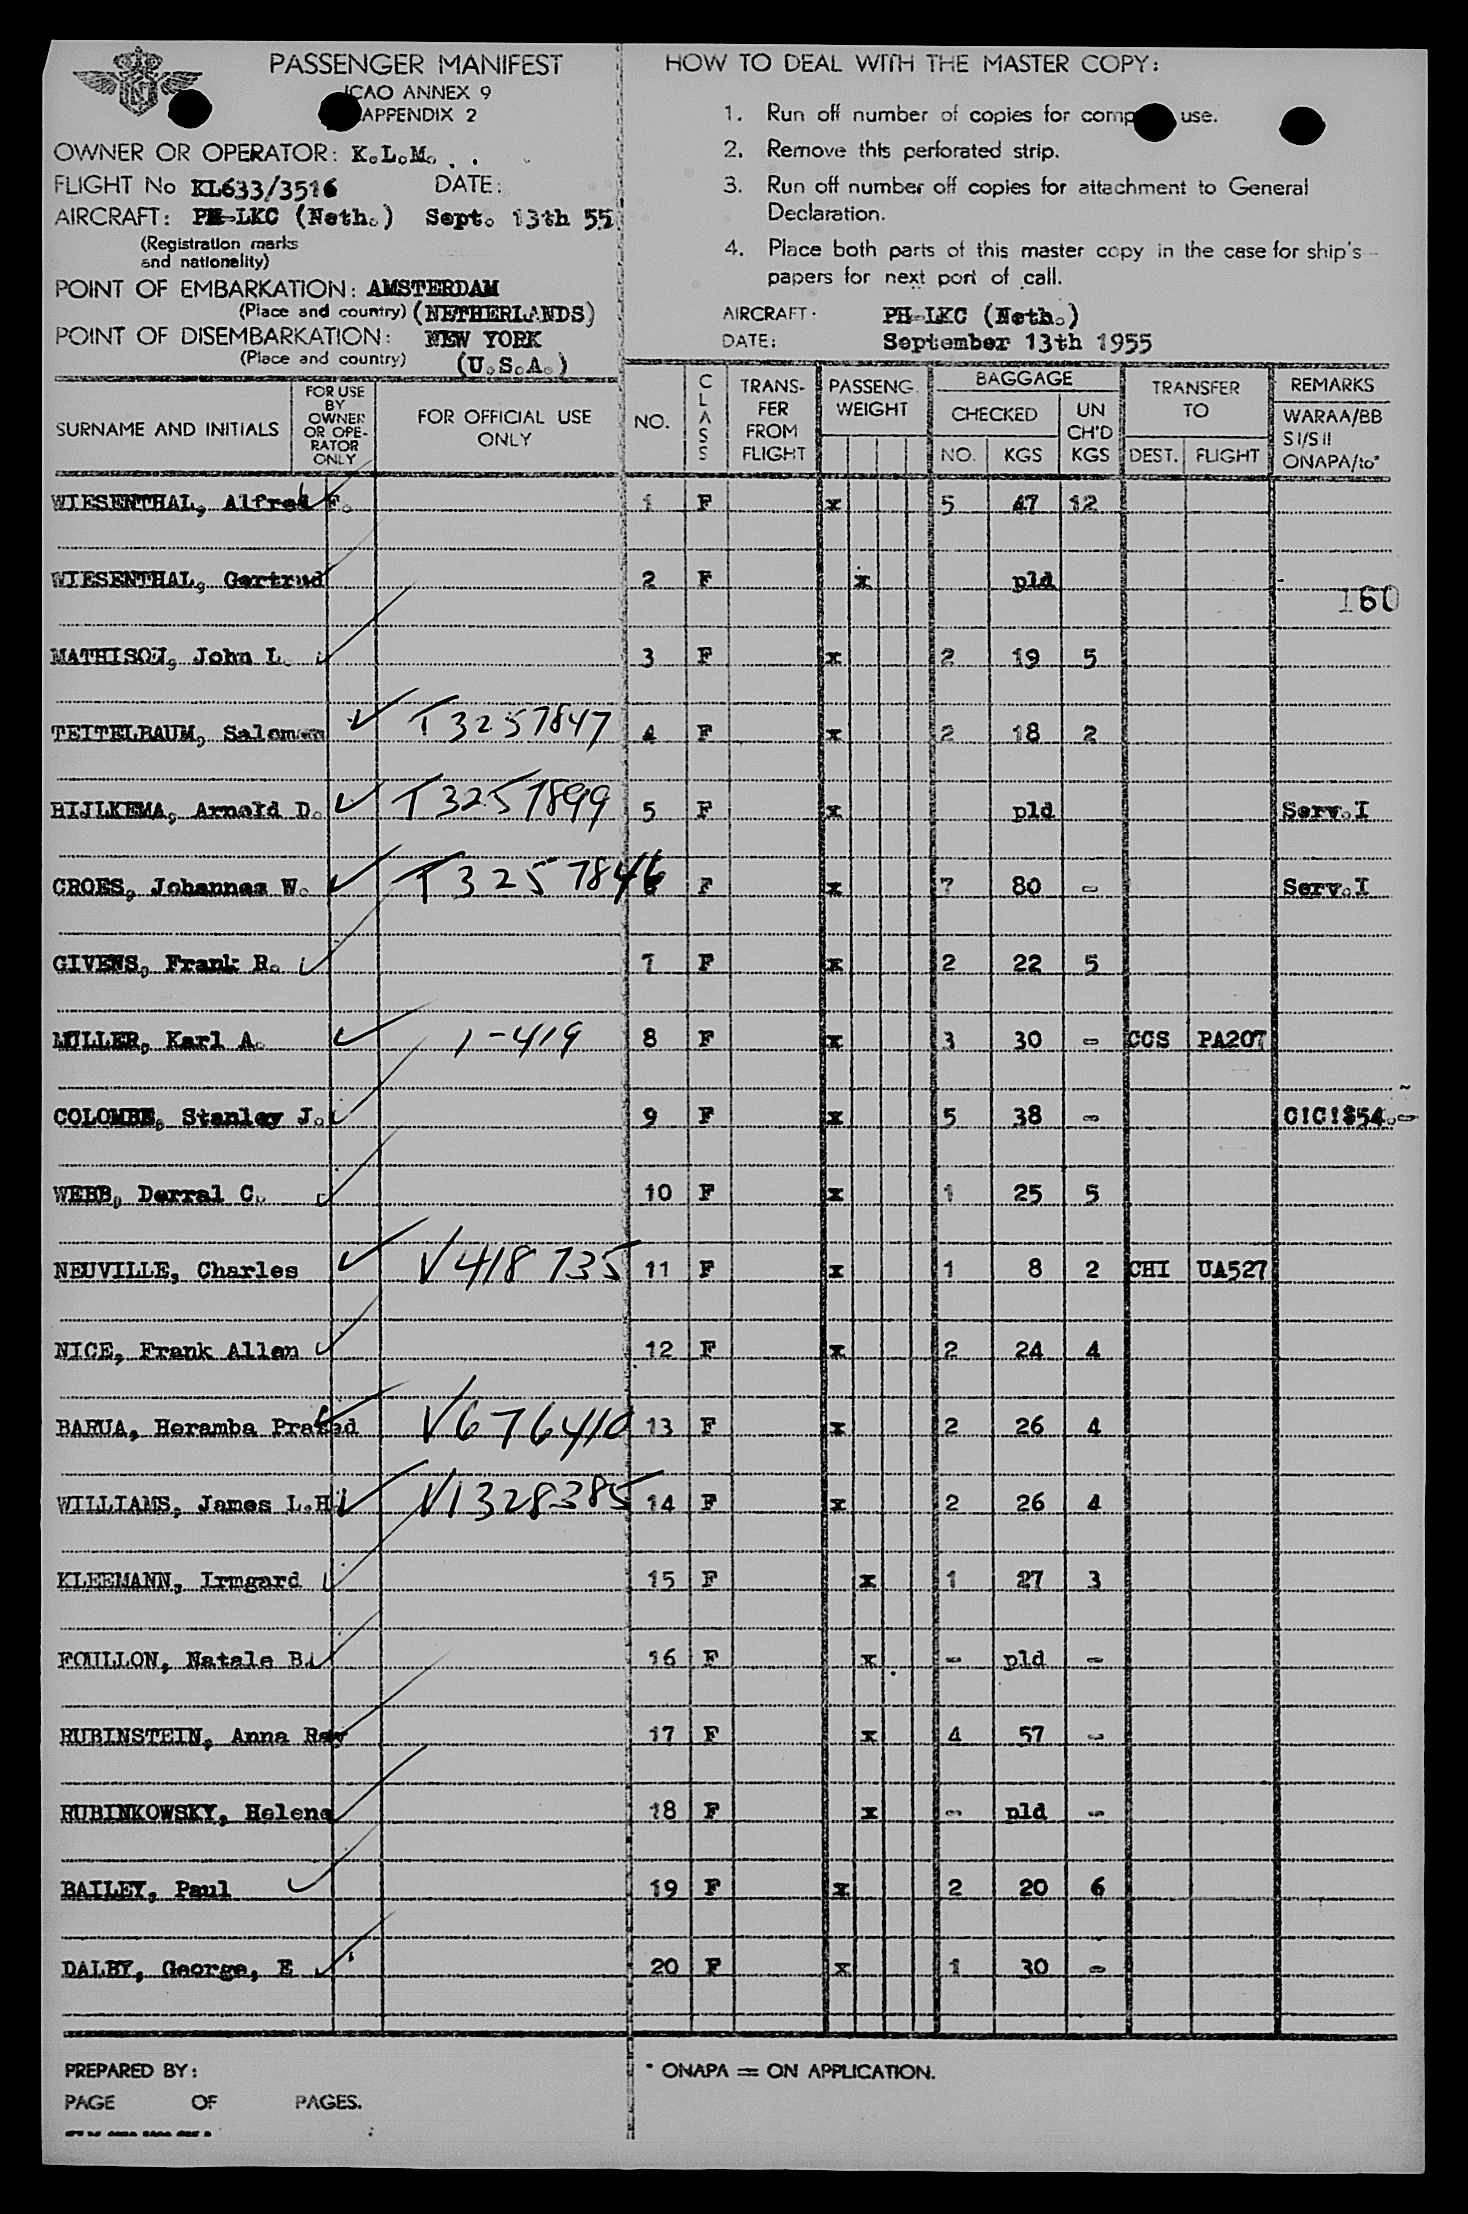 PASSENGER MANIFEST
ICAO ANNEX 9
APPENDIX 2
OWNER OR OPERATOR: K.L.M.
FLIGHT No KL633/3516 DATE:
AIRCRAFT: PH-LKC (Neth.) Sept. 13th 55
(Registration marks
and nationality)
POINT OF EMBARKATION: AMSTERDAM
(Place and country) (NETHERLANDS)
POINT OF DISEMBARKATION: NEW YORK
(Place and country) (U.S.A.)
HOW TO DEAL WITH THE MASTER COPY:
1. Run off number of copies for comp use.
2. Remove this perforated strip.
3. Run off number off copies for attachment to General
Declaration.
4. Place both parts of this master copy in the case for ship's
papers for next port of call.
AIRCRAFT: PH-LKC (Neth.)
DATE: September 13th 1955
SURNAME AND INITIALS
FOR USE
BY
OWNER
OR OPE-
RATOR
ONLY
FOR OFFICIAL USE
ONLY
NO.
CLASS
TRANS-
FER
FROM
FLIGHT
PASSENG.
WEIGHT
BAGGAGE
CHECKED
NO. KGS
UN
CH'D
KGS
TRANSFER
TO
DEST. FLIGHT
REMARKS
WARAA/BB
SI/SII
ONAPA/to*
WIESENTHAL, Alfred F. 1 F x 5 47 12
WIESENTHAL, Gertrud 2 F x pld
160
MATHISON, John L. 3 F x 2 19 5
TEITELBAUM, Salomon T3257847 4 F x 2 18 2
HIJLKEMA, Arnold D. T3257899 5 F x pld Serv.I
CROES, Johannes W. T3257846 F x 7 80 - Serv.I
GIVENS, Frank R. 7 F x 2 22 5
MULLER, Karl A. 1-419 8 F x 3 30 - CCS PA207
COLOMBE, Stanley J. 9 F x 5 38 - C!C!$54.-
WEBB, Derral C. 10 F x 1 25 5
NEUVILLE, Charles V418735 11 F x 1 8 2 CHI UA527
NICE, Frank Allen 12 F x 2 24 4
BARUA, Heramba Prasad V676410 13 F x 2 26 4
WILLIAMS, James L.H. V1328385 14 F x 2 26 4
KLEEMANN, Irmgard 15 F x 1 27 3
FOULLON, Natale B. 16 F x - pld -
RUBINSTEIN, Anna Ray 17 F x 4 57 -
RUBINKOWSKY, Helena 18 F x - pld -
BAILEY, Paul 19 F x 2 20 6
DALBY, George, E 20 F x 1 30 -
PREPARED BY:
PAGE OF PAGES.
* ONAPA = ON APPLICATION.